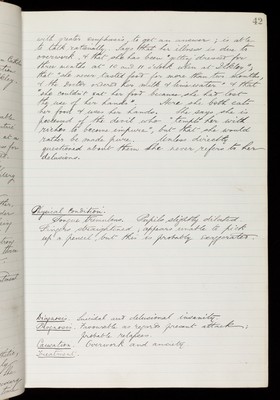 42
with greater emphasis, to get an answer; is able
to talk rationally. Says that her illness is due to
overwork, & that she has been "getting dinners for
three months at 10 and 11 o'clock when at
that "she never tasted food for more than two months,
& the doctor ordered her milk & lime water" & that
"she couldn't eat her food because she had lost
the use of her hands". Here she both eats
her food & uses her hands. She says she is
possessed of the devil who "tempts her with
riches to become impure", but that she would
rather be made pure. Unless directly
questioned about them she never refers to her
delusions.
Physical Condition:
Tongue tremulous. Pupils slightly dilated.
Fingers straightened; appears unable to pick
up a pencil, but this is probably exaggerated.
Diagnosis: Suicidal and delusional insanity.
Prognosis: Favourable as regards present attack;
probable relapses.
Causation: Overwork and anxiety.
Treatment: